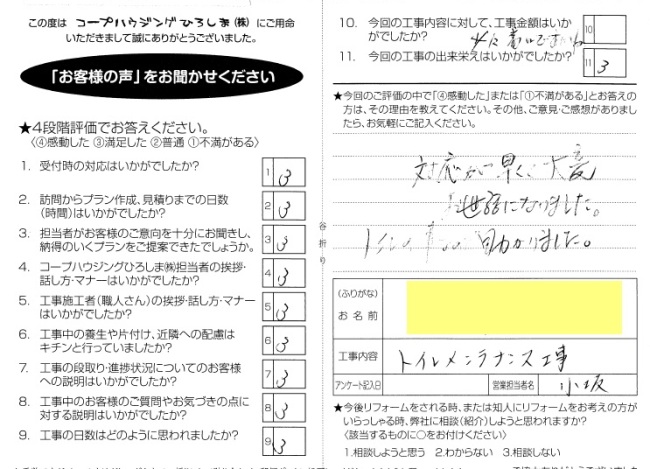 この度は コープハウジングひろしま(株) にご用命
いただきまして誠にありがとうございました。
「お客様の声」をお聞かせください
★4段階評価でお答えください。
〈④感動した ③満足した ②普通 ①不満がある〉
1. 受付時の対応はいかがでしたか?
1 3
2. 訪問からプラン作成、見積りまでの日数
(時間)はいかがでしたか?
2 3
3. 担当者がお客様のご意向を十分にお聞きし、
納得のいくプランをご提案できたでしょうか。
3 3
4. コープハウジングひろしま㈱担当者の挨拶・
話し方・マナーはいかがでしたか?
4 3
5. 工事施工者(職人さん)の挨拶・話し方・マナー
はいかがでしたか?
5 3
6. 工事中の養生や片付け、近隣への配慮は
キチンと行っていましたか?
6 3
7. 工事の段取り・進捗状況についてのお客様
への説明はいかがでしたか?
7 3
8. 工事中のお客様のご質問やお気づきの点に
対する説明はいかがでしたか?
8 3
9. 工事の日数はどのように思われましたか?
9 3
谷折り
10. 今回の工事内容に対して、工事金額はいか
がでしたか?
10
11. 今回の工事の出来栄えはいかがでしたか?
11 3
★今回のご評価の中で「④感動した」または「①不満がある」とお答えの
方は、その理由を教えてください。その他、ご意見・ご感想がありまし
たら、お気軽にご記入ください。
対応が早く、大変
お世話になりました。
トイレ 助かりました。
(ふりがな)
お 名 前
工事内容 トイレメンテナンス工事
アンケート記入日 営業担当者名 小坂
★今後リフォームをされる時、または知人にリフォームをお考えの方が
いらっしゃる時、弊社に相談(紹介)しようと思われますか?
〈該当するものに○をお付けください〉
1.相談しようと思う 2.わからない 3.相談しない